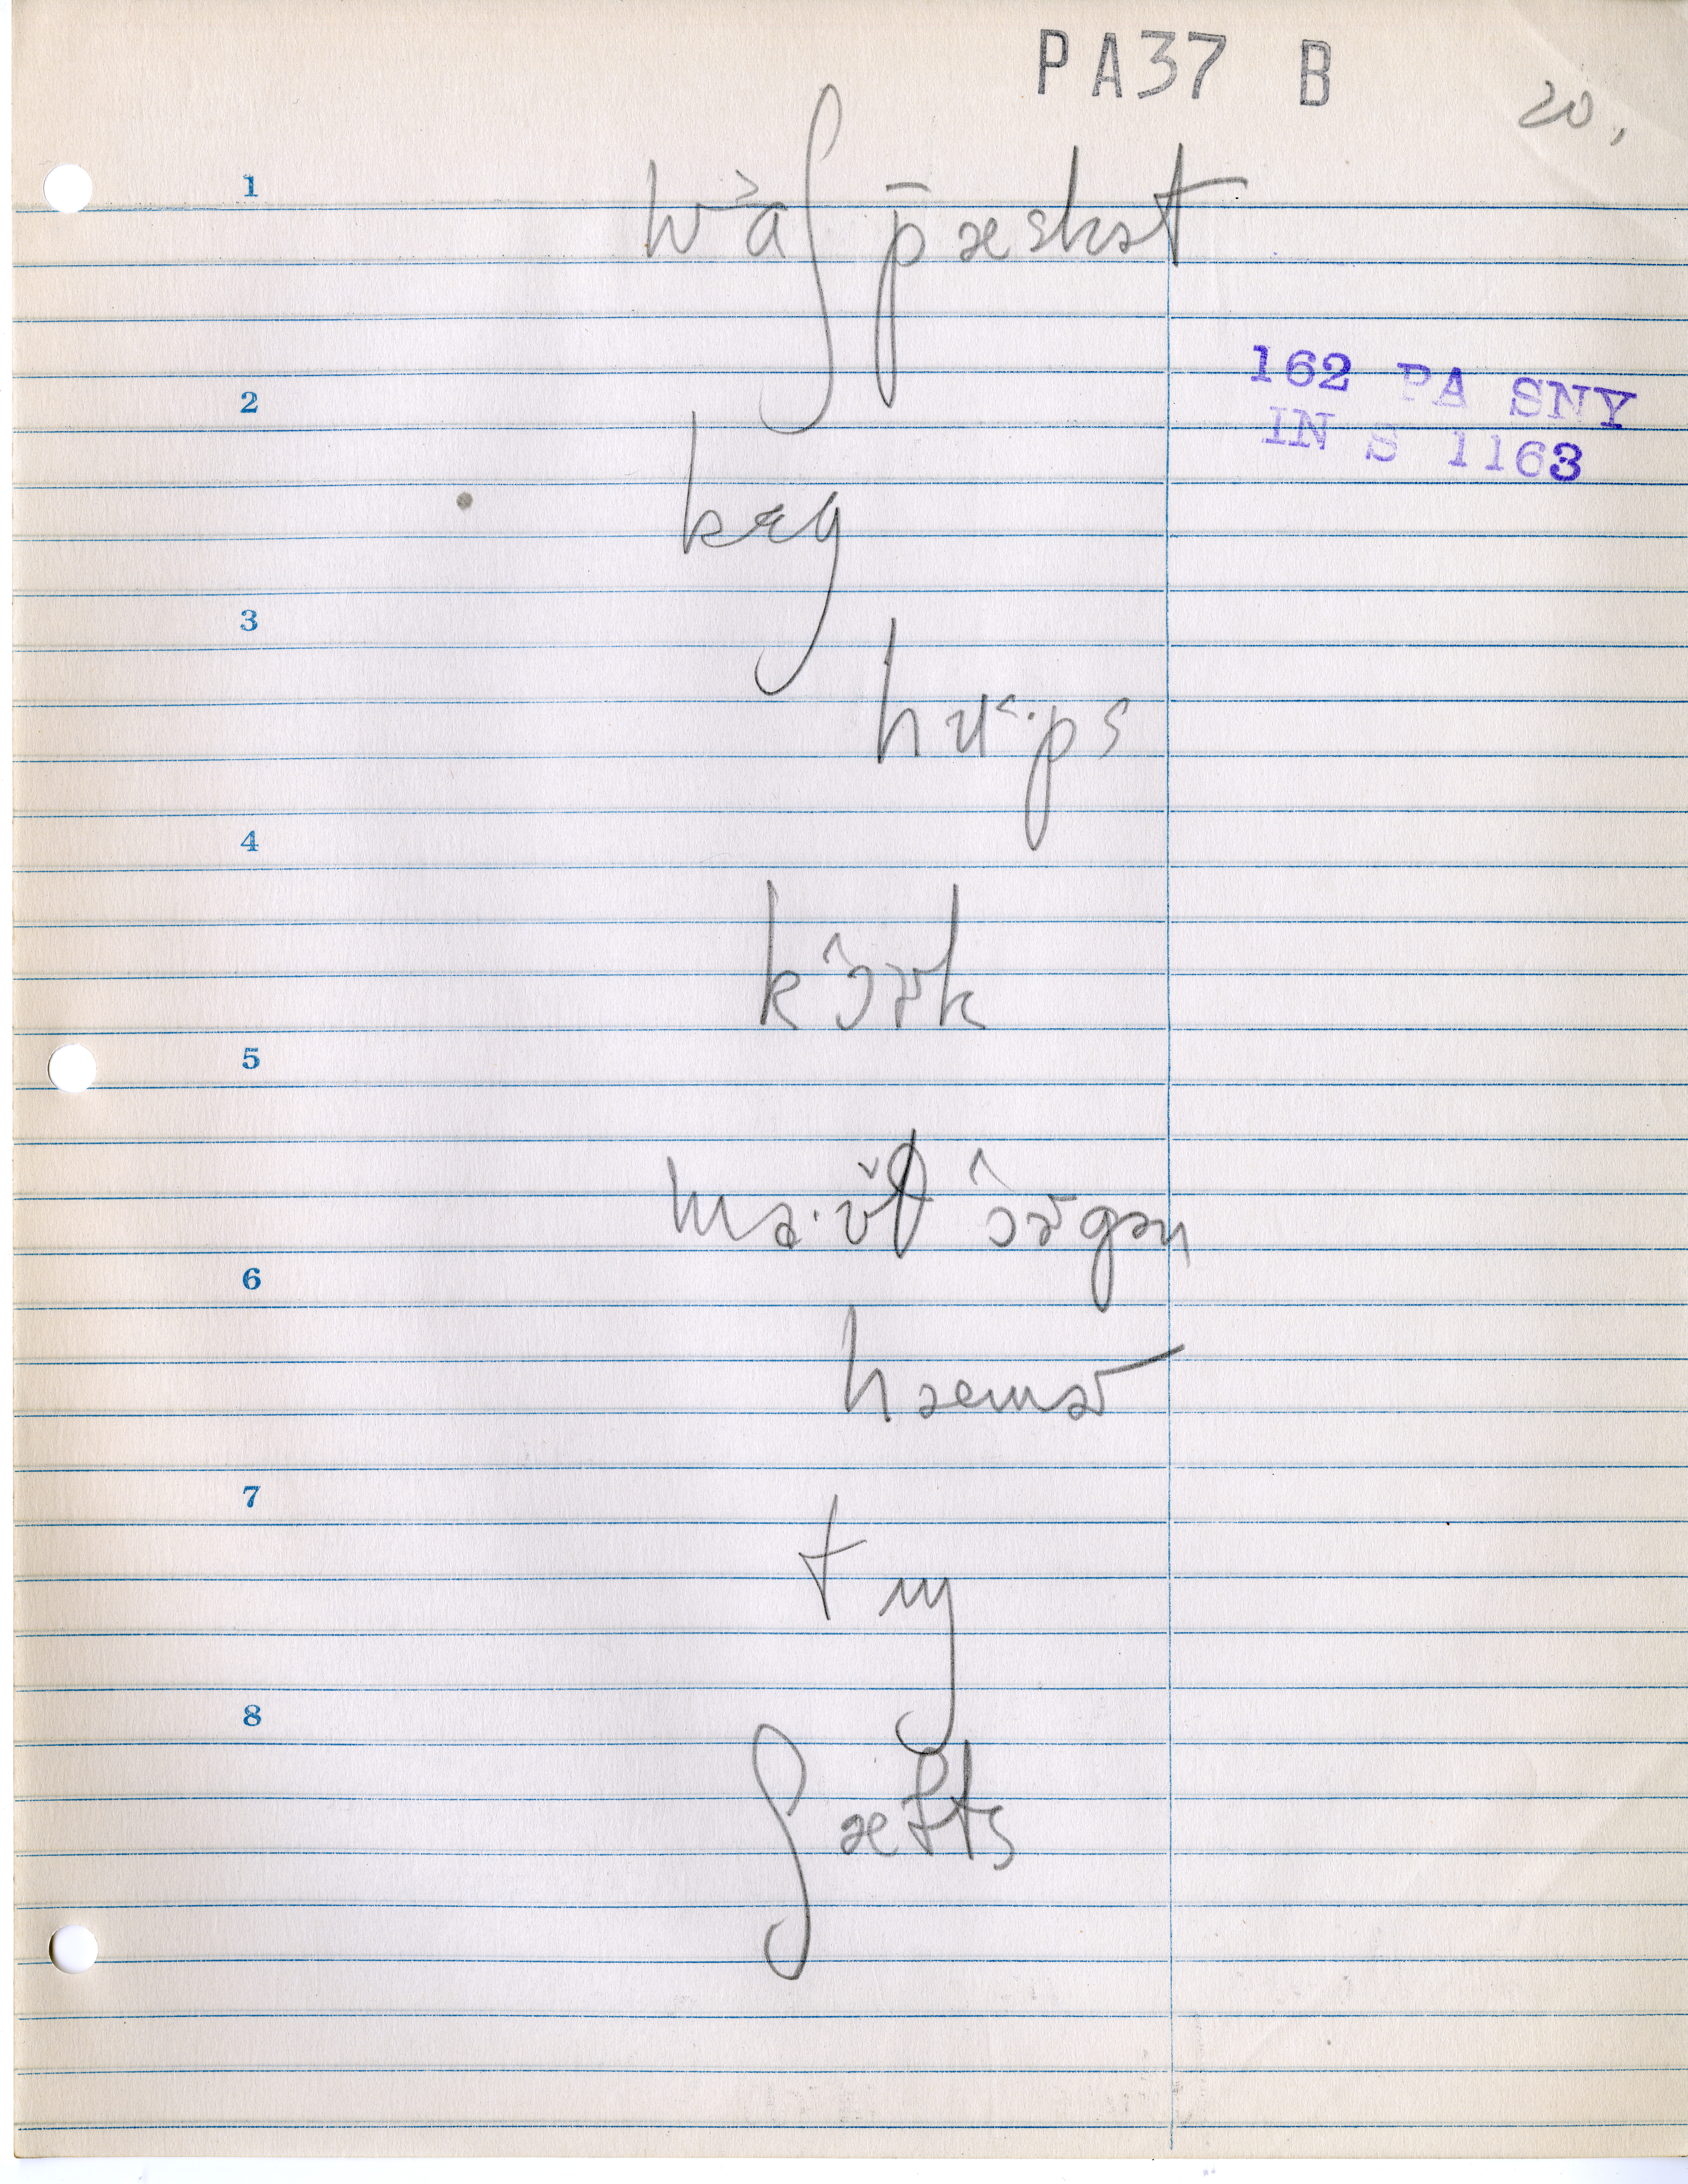 PA37 B
20.
1 wɑ˃ʃpæskət
162 PA SNY
2
IN S 1163
kɛg
3
hʊ˂·ps
4
kɔ˄ɚk
5
mɑ·ʊ̌θ ɔ˄ɚgən
6
hæmɚ
7
tʌŋ
8
ʃæfts